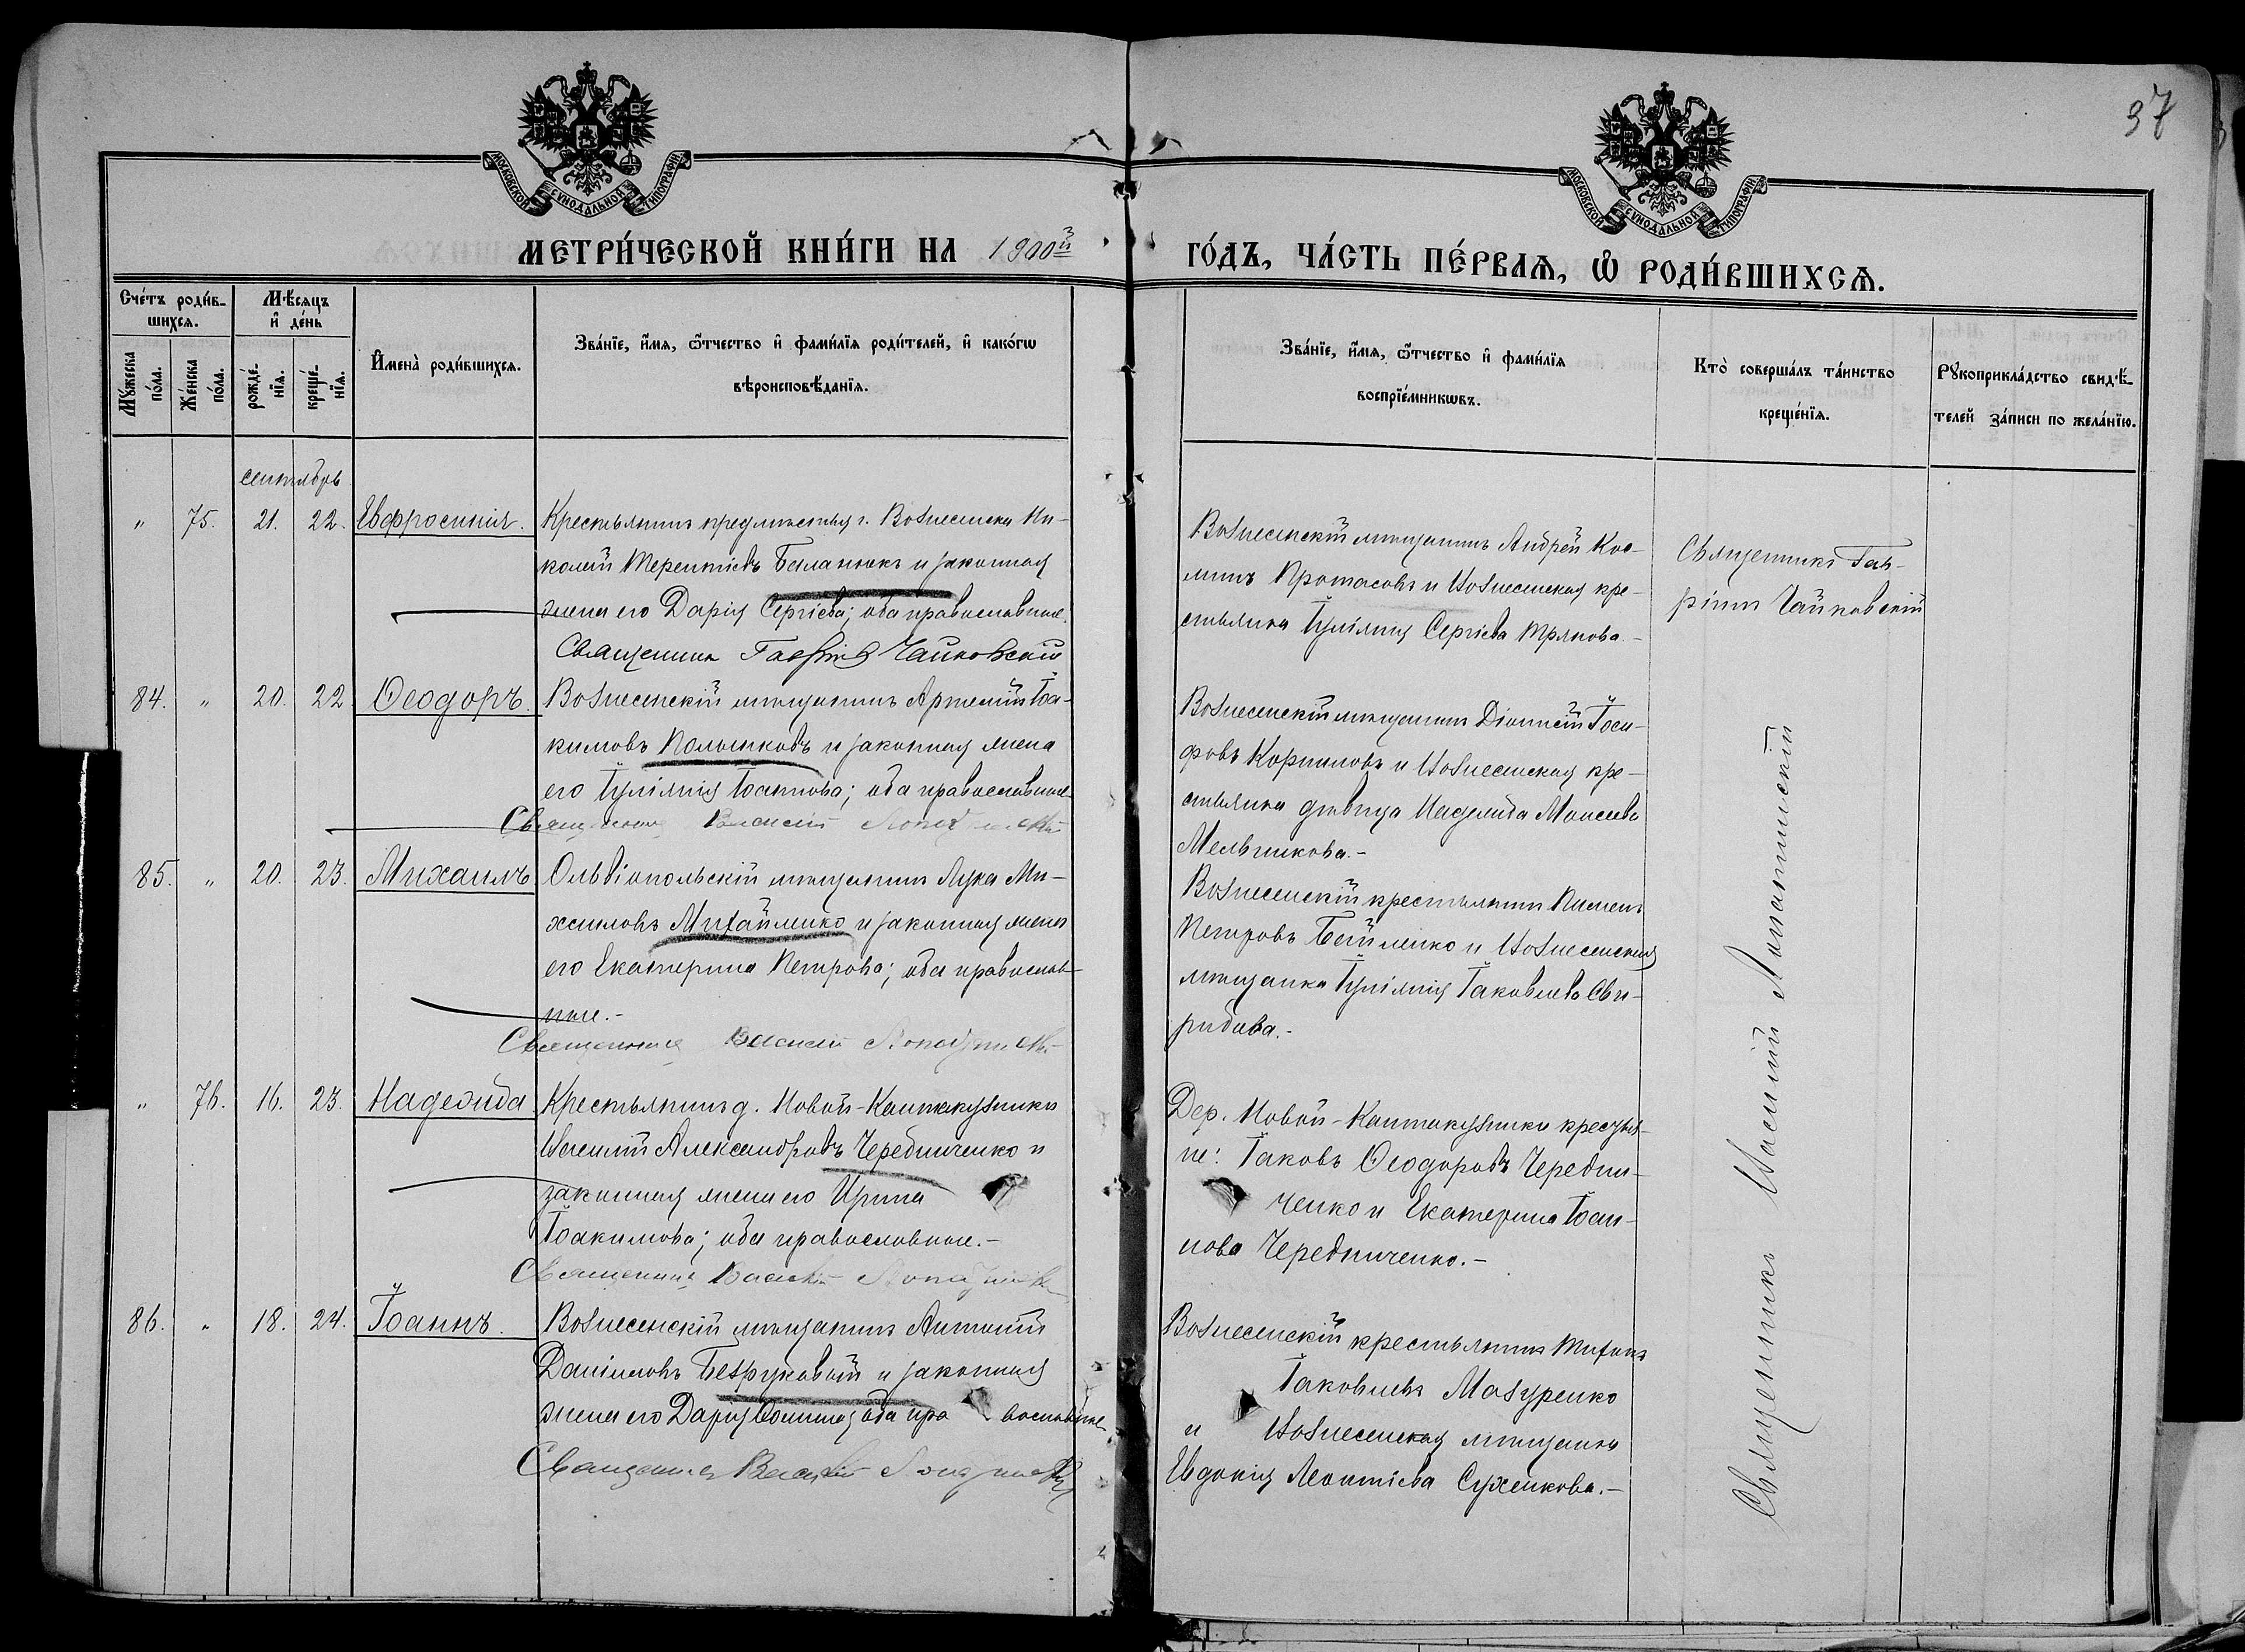 37
МОСКОВСКОЙ СУНОДАЛЬНОЙ ТИПОГРАФІИ
МОСКОВСКОЙ СУНОДАЛЬНОЙ ТИПОГРАФІИ
МЕТРИ́ЧЕСКОЙ КНИ́ГИ НА 1900й ГО́ДЪ, ЧА́СТЬ ПЕ́РВАѦ, Ѡ҆ РОДИ́ВШИХСѦ.
Сче́тъ роди́в-
шихсѧ.
Мꙋ́жеска
по́ла.
Же́нска
по́ла.
Мѣ́сѧцъ
и҆ де́нь
рожде́-
нїѧ.
креще́-
нїѧ.
И҆мена̀ роди́вшихсѧ.
Зва́нїе, и҆́мѧ, ѻ҆́тчество и҆ фами́лїѧ роди́телей, и҆ како́гѡ
вѣроисповѣ́данїѧ.
Зва́нїе, и҆́мѧ, ѻ҆́тчество и҆ фами́лїѧ
воспрїе́мникѡвъ.
Кто̀ соверша́лъ та́инство
креще́нїѧ.
Рꙋкоприкла́дство свидѣ́-
телей за́писи по жела́нїю.
сентябрь
" 75. 21. 22. Евфросинія.
Крестьянинъ предмѣстья г. Вознесенска Ни-
колай Терентіевъ Баланюкъ и законная
жена его Дарія Сергіева; оба православные.
Священник Гавріил Чайковскій
Вознесенскій мѣщанинъ Андрей Кос-
минъ Протасовъ и Вознесенская кре-
стьянка Іуліанія Сергіева
Священникъ Гав-
ріилъ Чайковскій
84. " 20. 22. Ѳеодоръ.
Вознесенскій мѣщанинъ Артемій Іоа-
кимовъ и законная жена
его Іуліанія Іоаннова; оба православные
Священник Василій
Вознесенскій мѣщанинъ Діонисій Іоси-
фовъ Корниловъ и Вознесенская кре-
стьянка дѣвица Надежда Моисеева
Мельникова.-
85. " 20. 23. Михаилъ
Ольвіопольскій мѣщанинъ Лука Ми-
хаиловъ Михайленко и законная жена
его Екатерина Петрова; оба православ-
ные.-
Священник Василій
Вознесенскій крестьянинъ Пименъ
Петровъ и Вознесенская
мѣщанка Іуліанія Іаковлева Сви-
ридова.-
" 76. 16. 23. Надежда
Крестьянинъ д. Новой-Кантакузинки
Василій Александровъ Чередниченко и
законная жена его Ирина
Іоакимова; оба православные.-
Священник Василій
Дер. Новой-Кантакузинки крестья-
не: Іаковъ Ѳеодоровъ Чередни-
ченко и Екатерина Іоан-
нова Чередниченко.-
86. " 18. 24. Іоаннъ.
Вознесенскій мѣщанинъ Антоній
Даніиловъ Безруковый и законная
жена его Дарія оба православные
Священник Василій
Вознесенскій крестьянинъ Тихонъ
Іаковлевъ Мазуренко
и Вознесенская мѣщанка
Евдокія Леонтіева Сухенкова.-
Священникъ Василій Лопатинскій